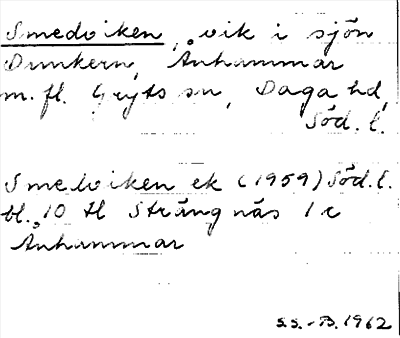 Smedviken, vik i sjön
Dunkern, Ånhammar
m. fl. Gryts sn, Daga hd,
Söd. l.
Smedviken ek (1959) Söd. l.
bl. 10 H Strängnäs 1 c
Ånhammar
S.S.-B. 1962